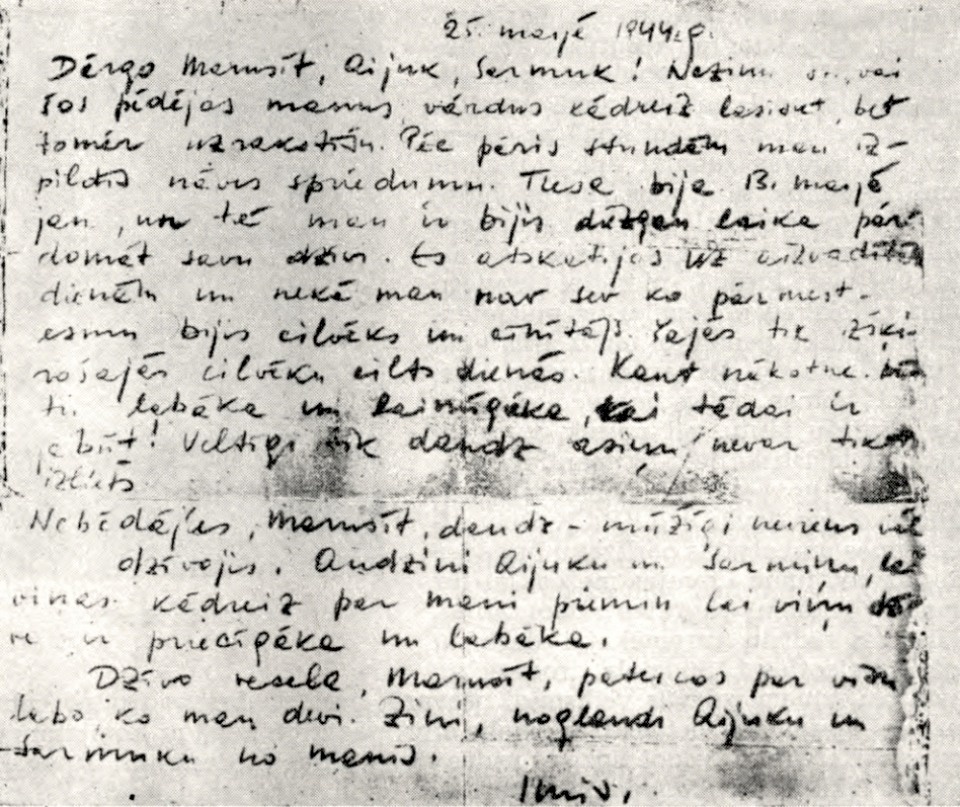 25. maijā 1944. g.
Dārgo Marusīt, Aijuk, Sarmuk! Nezinu vai
šos pēdējos manus vārdus kādreiz lasisat, bet
tomēr uzrakstīšu. Pēc pāris stundām man iz-
pildīs nāves spriedumu. Tiesa bija 13. maijā
jau, un tā man ir bijis diezgan laika pār-
domāt savu dzīvi. Es atskatījos uz aizvadītām
dienām un nekā man nav sev ko pārmest -
esmu bijis cilvēks un cīnītājs šajās tik izšķi-
rošajās cilvēku cilts dienās. Kaut nākotne būtu
labāka un laimīgāka, tai tādai ir
jābūt! Veltīgi tik daudz asiņu nevar tikt
izliets.
Nebēdājies, Marusīt, daudz - mūžīgi neviens nav
dzīvojis. Audzini Aijuku un Sarmuku, lai
viņas kādreiz par mani piemin lai viņu
ir priecīgāka un labāka.
Dzīvo vesela, Marusīt, pateicos par visu
labo, ko man devi. Zini, noglaudi Aijuku un
Sarmuku no manis.
Imis.